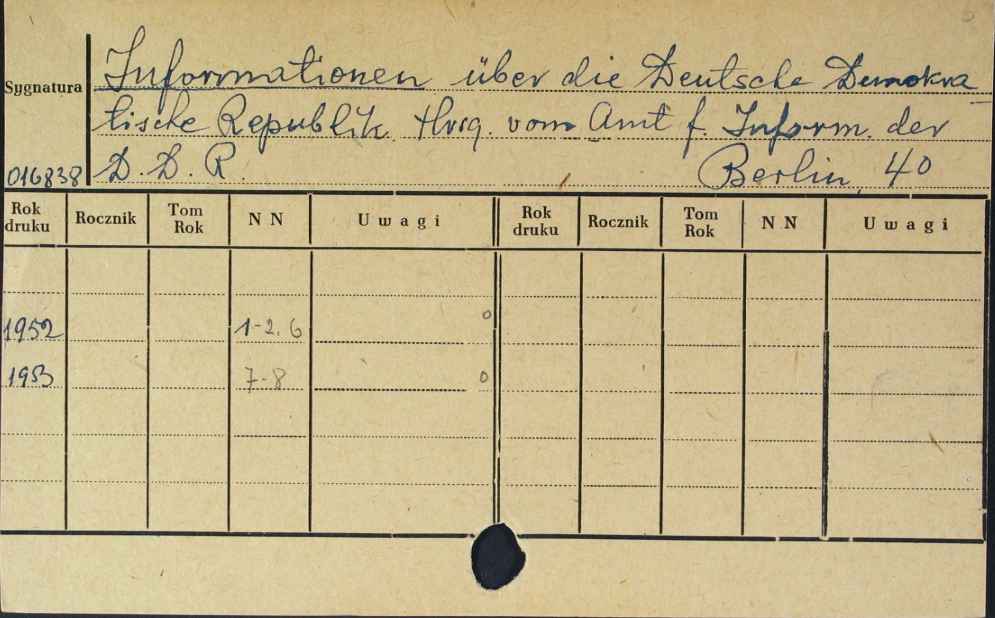 Informationen über die Deutsche Demokra_
Sygnatura
tische Republik. Hrsg. vom Amt f. Inform. der
016838 D. D. R. Berlin, 40
Rok druku Rocznik Tom Rok N N Uwagi Rok druku Rocznik Tom Rok N N Uwagi
1952 1-2.6 0
1953 7-8 0